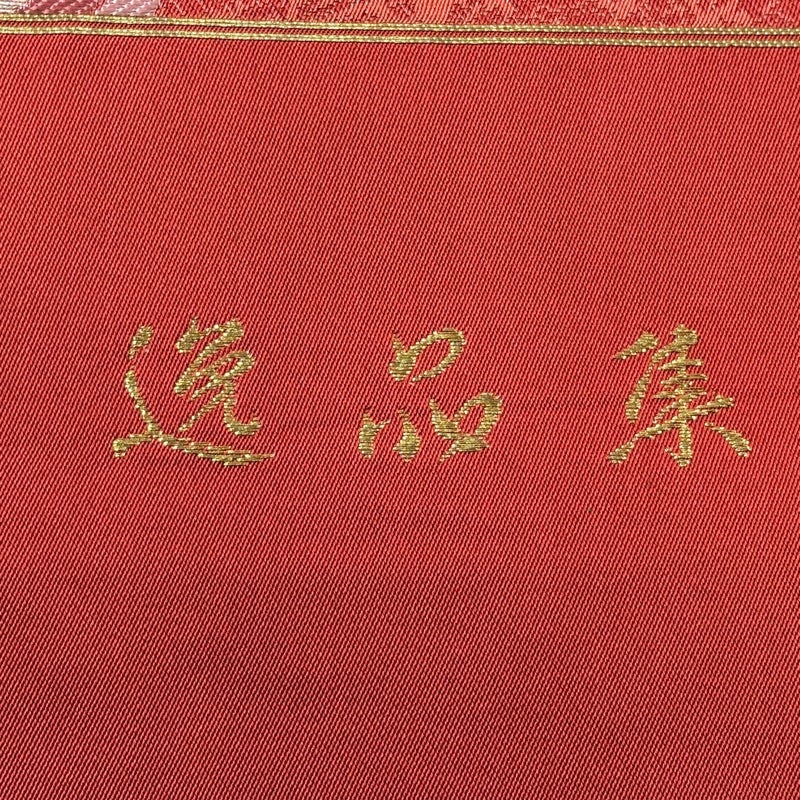 逸品集